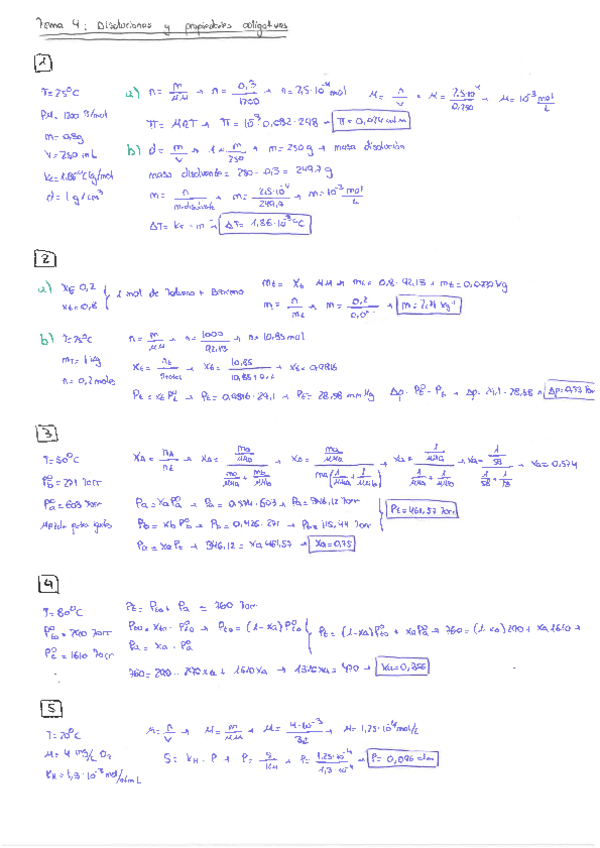 Tema 4: Disoluciones y propiedades coligativas
1
T=25ºC
PM=1200 g/mol
m=0,3g
V=250 mL
Kc=1,86ºC kg/mol
d=1g/cm³
a) n = m/MM → n = 0,3/1200 → n=2,5·10⁻⁴mol M = n/V = M = 2,5·10⁻⁴/0,250 → M=10⁻³ mol/L
π = MRT → π = 10⁻³·0,082·298 → π = 0,024 atm
b) d = m/V → 1 = m/250 → m=250g → masa disolución
masa disolvente = 250 - 0,3 = 249,7 g
m = n/m disolvente → m = 2,5·10⁻⁴/249,7 → m=10⁻³ mol/L
ΔT= Kc · m → ΔT= 1,86·10⁻³ºC
2
a) Xb 0,2
Xt=0,8
1 mol de Tolueno + Benceno
mt= Xt MM → mt= 0,8·92,13 → mt=0,0&#8203;Kg
m = n/mt → m = 0,2/0,0 → m=2,71 kg⁻¹
b) T=25ºC
mT=1kg
n=0,2moles
n = m/MM → n = 1000/92,13 → n=10,85mol
Xt = nt/ntotales → Xt = 10,85/10,85+0,2 → Xt=0,9816
Pt = Xt Pt⁰ → Pt=0,9816·29,1 → Pt= 28,58 mmHg Δp= Pt⁰-Pt → Δp= 29,1-28,58 → Δp=0,53 Torr
3
T=50ºC
Pb⁰=271 Torr
Pa⁰=603 Torr
Mezcla partes iguales
XA = nA/nt → XA= → XA= → XA= → XA= → XA=0,574
Pa=XaPa⁰ → Pa=0,574·603 → Pa=346,12 Torr
Pb=XbPb⁰ → Pb=0,426·271 → Pb=115,44 Torr
Pt=461,57 Torr
Pa=XaPt → 346,12=Xa·461,57 → Xa=0,75
4
T=80ºC
Pto⁰=290 Torr
Pa⁰=1610 Torr
Pt= Pto + Pa = 760 Torr
Pto=Xto·Pto⁰ → Pto=(1-Xa)Pto⁰
Pa=Xa·Pa⁰
Pt=(1-Xa)Pto⁰ + XaPa⁰ → 760=(1-Xa)290 + Xa1610 →
760=290-290Xa + 1610Xa → 1320Xa=470 → Xa=0,356
5
T=20ºC
M=4 mg/L O₂
KH=1,3·10⁻³mol/atm L
M = n/V → M = m/MM → M = 4·10⁻³/32 → M=1,25·10⁻⁴mol/L
S = KH·P → P = S/KH → P = 1,25·10⁻⁴/1,3·10⁻³ → P=0,096 atm